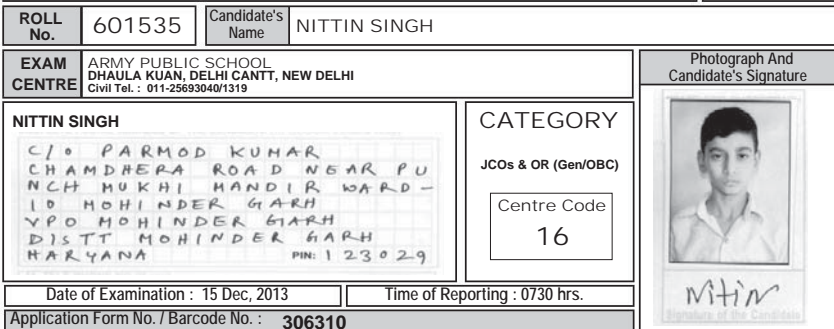 ROLL No. 601535 Candidate's Name NITTIN SINGH
EXAM CENTRE ARMY PUBLIC SCHOOL
DHAULA KUAN, DELHI CANTT, NEW DELHI
Civil Tel. : 011-25693040/1319
Photograph And
Candidate's Signature
NITTIN SINGH
C/o PARMOD KUMAR
CHAMDHERA ROAD NEAR PU
NCH MUKHI MANDIR WARD-
10 MOHINDER GARH
VPO MOHINDER GARH
DISTT MOHINDER GARH
HARYANA PIN: 123029
CATEGORY
JCOs & OR (Gen/OBC)
Centre Code
16
Nitin
Signature of the Candidate
Date of Examination : 15 Dec, 2013 Time of Reporting : 0730 hrs.
Application Form No. / Barcode No. : 306310